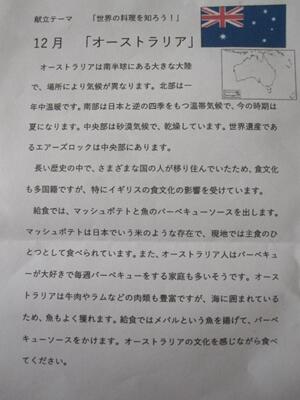 献立テーマ 「世界の料理を知ろう!」
12月 「オーストラリア」
オーストラリアは南半球にある大きな大陸
で、場所により気候が異なります。北部は一
年中温暖です。南部は日本と逆の四季をもつ温帯気候で、今の時期は
夏になります。中央部は砂漠気候で、乾燥しています。世界遺産であ
るエアーズロックは中央部にあります。
長い歴史の中で、さまざまな国の人が移り住んでいたため、食文化
も多国籍ですが、特にイギリスの食文化の影響を受けています。
給食では、マッシュポテトと魚のバーベキューソースを出します。
マッシュポテトは日本でいう米のような存在で、現地では主食のひ
とつとして食べられています。また、オーストラリア人はバーベキュ
ーが大好きで毎週バーベキューをする家庭も多いそうです。オース
トラリアは牛肉やラムなどの肉類も豊富ですが、海に囲まれている
ため、魚もよく獲れます。給食ではメバルという魚を揚げて、バーベ
キューソースをかけます。オーストラリアの文化を感じながら食べ
てください。